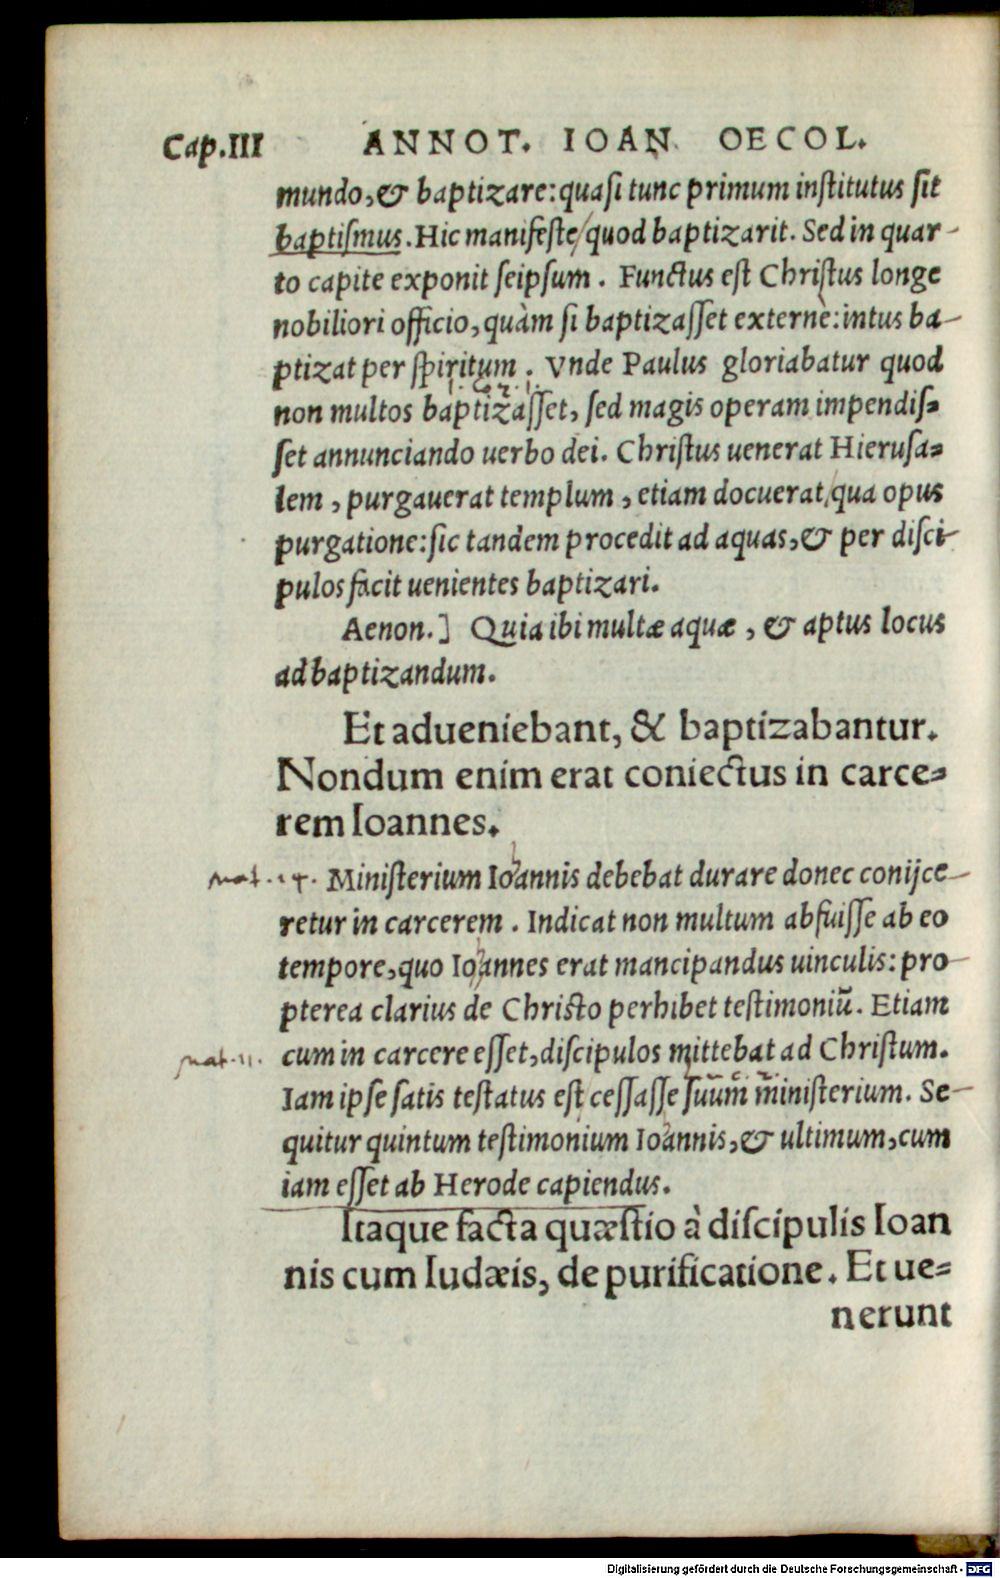 Cap.III ANNOT. IOAN. OECOL.
mundo, & baptizare: quasi tunc primum institutus sit
baptismus. Hic manifeste/ quod baptizarit. Sed in quar-
to capite exponit seipsum. Functus est Christus longe
nobiliori officio, quàm si baptizasset externè: intus ba-
ptizat per spiritum. Vnde Paulus gloriabatur quod
non multos baptizasset, sed magis operam impendis-
set annunciando uerbo dei. Christus uenerat Hierusa-
lem, purgauerat templum, etiam docuerat, qua opus
purgatione: sic tandem procedit ad aquas, & per disci-
pulos facit uenientes baptizari.
Aenon.] Quia ibi multæ aquæ, & aptus locus
ad baptizandum.
Et adueniebant, & baptizabantur.
Nondum enim erat coniectus in carce-
rem Ioannes.
mat. 14. Ministerium Ioannis debebat durare donec conijce-
retur in carcerem. Indicat non multum abfuisse ab eo
tempore, quo Ioannes erat mancipandus uinculis: pro-
pterea clarius de Christo perhibet testimoniū. Etiam
mat. 11. cum in carcere esset, discipulos mittebat ad Christum.
Iam ipse satis testatus est cessasse suum ministerium. Se-
quitur quintum testimonium Ioannis, & ultimum, cum
iam esset ab Herode capiendus.
Itaque facta quæstio à discipulis Ioan
nis cum Iudæis, de purificatione. Et ue-
nerunt
Digitalisierung gefördert durch die Deutsche Forschungsgemeinschaft - DFG